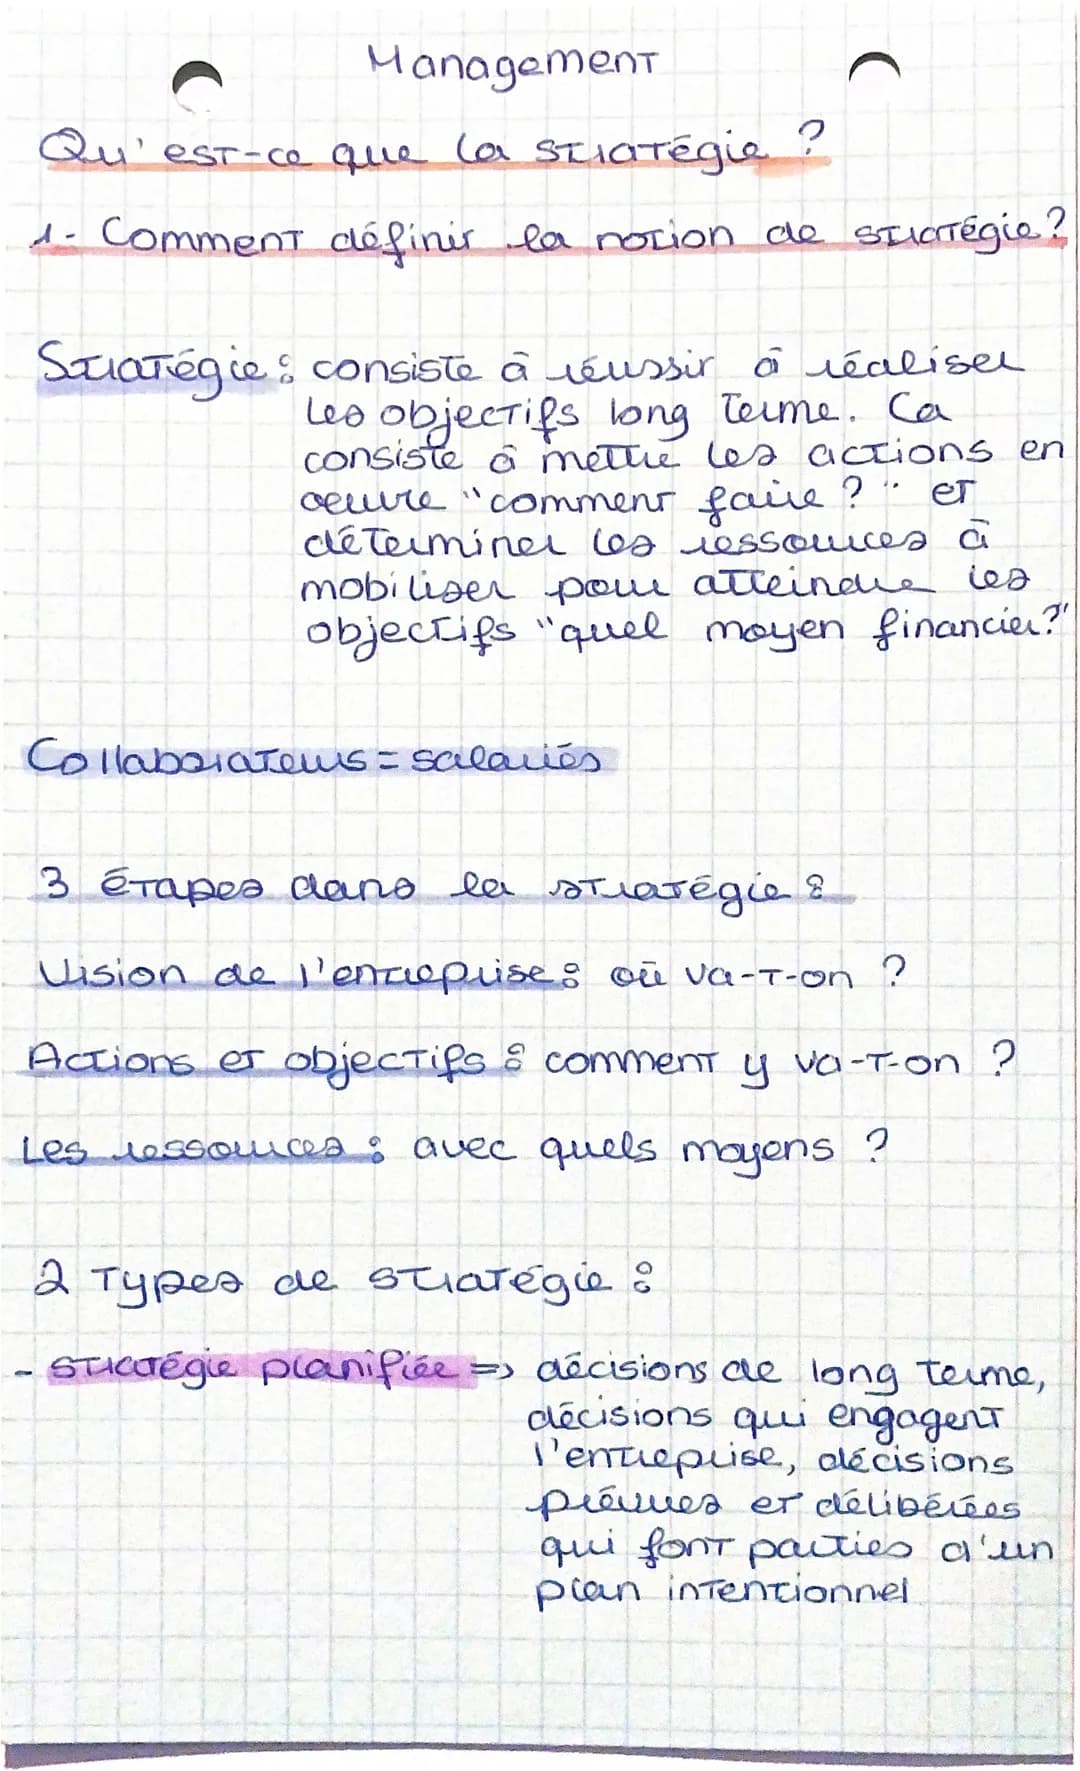 Management
Qu'est-ce que la stratégie ?
1- Comment définir la notion de stratégie?
Stratégie : consiste à réussir à réaliser
les objectifs long terme. Ca
consiste à mettre les actions en
oeuvre "comment faire ?" et
déterminer les ressources à
mobiliser pour atteindre les
objectifs "quel moyen financier?"
Collaborateurs = salariés
3 étapes dans la stratégie :
Vision de l'entreprise : où va-t-on ?
Actions et objectifs : comment y va-t-on ?
Les ressources : avec quels moyens ?
2 types de stratégie :
- stratégie planifiée => décisions de long terme,
décisions qui engagent
l'entreprise, décisions
prévues et délibérées
qui font parties d'un
plan intentionnel